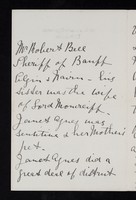 Mr Robert Bell
Sheriff of Banff
Elgin & Nairn - his
sister was the wife
of Lord Moncreiff.
Janet Agnes was
sensitive & her Mother's
pet.
Janet Agnes did a
great deal of district